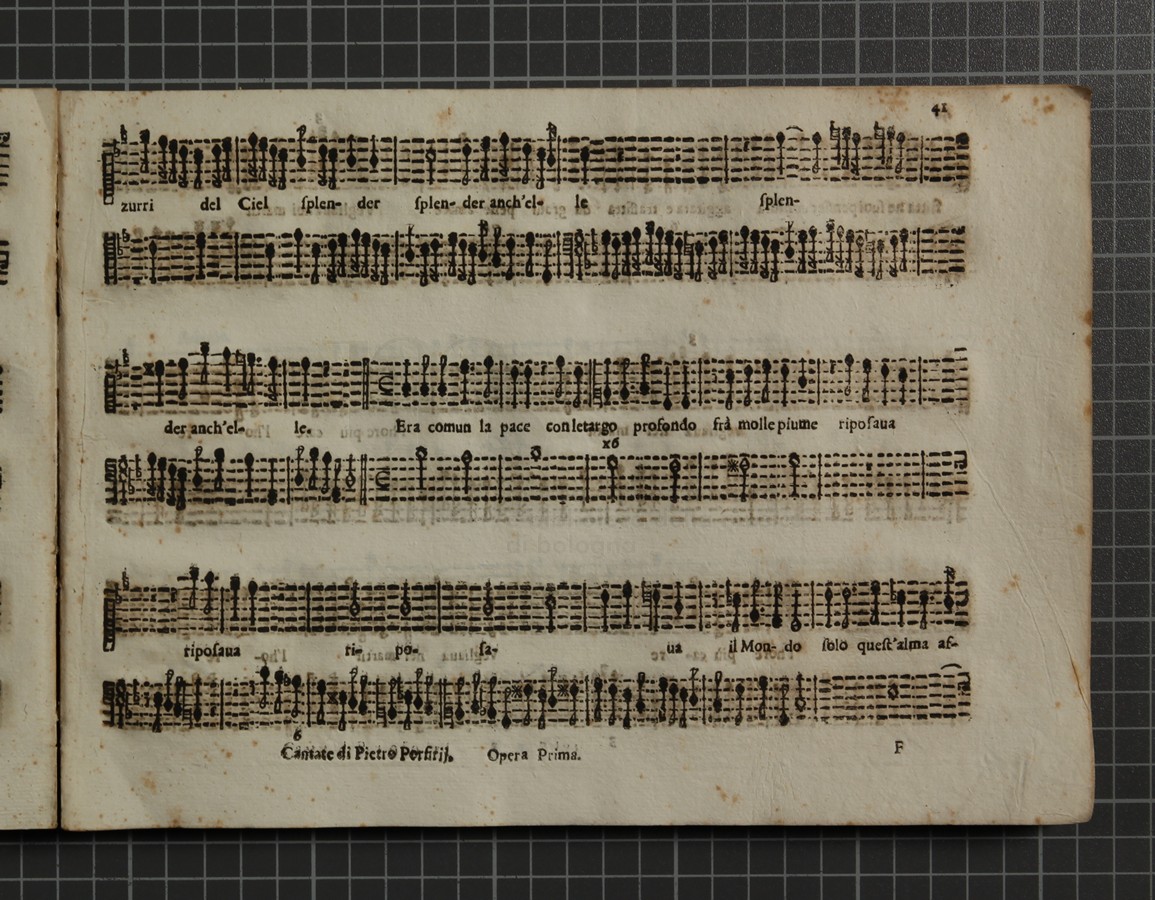 41
zurri del Ciel ſplen- der ſplen- der anch'el- le ſplen-
der anch'el- le. Era comun la pace con letargo profondo frà molle piume ripoſaua
x6
ripoſaua ri- po- ſa- ua il Mon- do ſolo queſt'alma af-
6
Cantate di Pietro Porfirij. Opera Prima. F